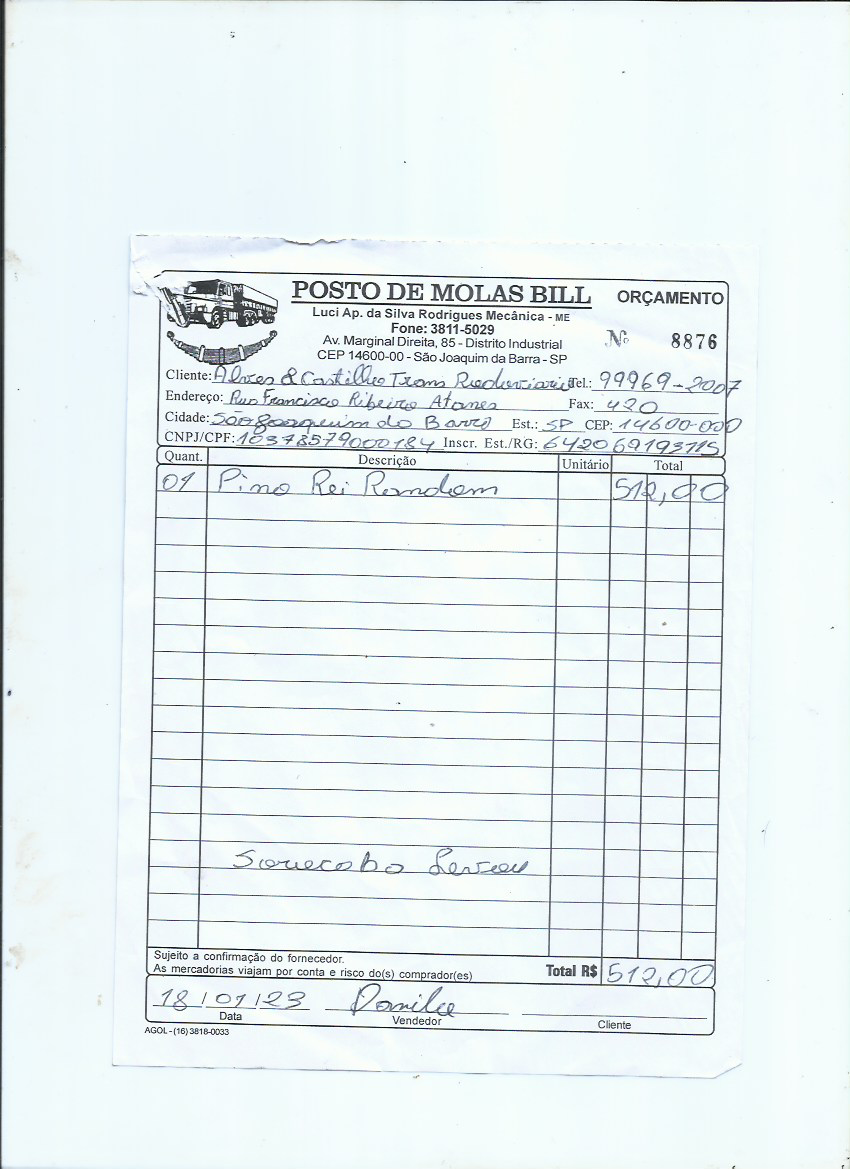 POSTO DE MOLAS BILL
ORÇAMENTO
Luci Ap. da Silva Rodrigues Mecânica - ME
Fone: 3811-5029
Av. Marginal Direita, 85 - Distrito Industrial
CEP 14600-00 - São Joaquim da Barra - SP
Nº 8876
Cliente: Alves & Castilho Trans Rodoviario Tel.: 99969-2007
Endereço: Rua Francisco Ribeiro Fax: 420
Cidade: São Joaquim da Barra Est.: SP CEP: 14600-000
CNPJ/CPF: 10378579000184 Inscr. Est./RG: 642069193115
Quant. Descrição Unitário Total
01 Pino Rei Randon 512,00
Sujeito a confirmação do fornecedor.
As mercadorias viajam por conta e risco do(s) comprador(es)
Total R$ 512,00
18/01/23 Danilo
Data Vendedor Cliente
AGOL - (16) 3818-0033